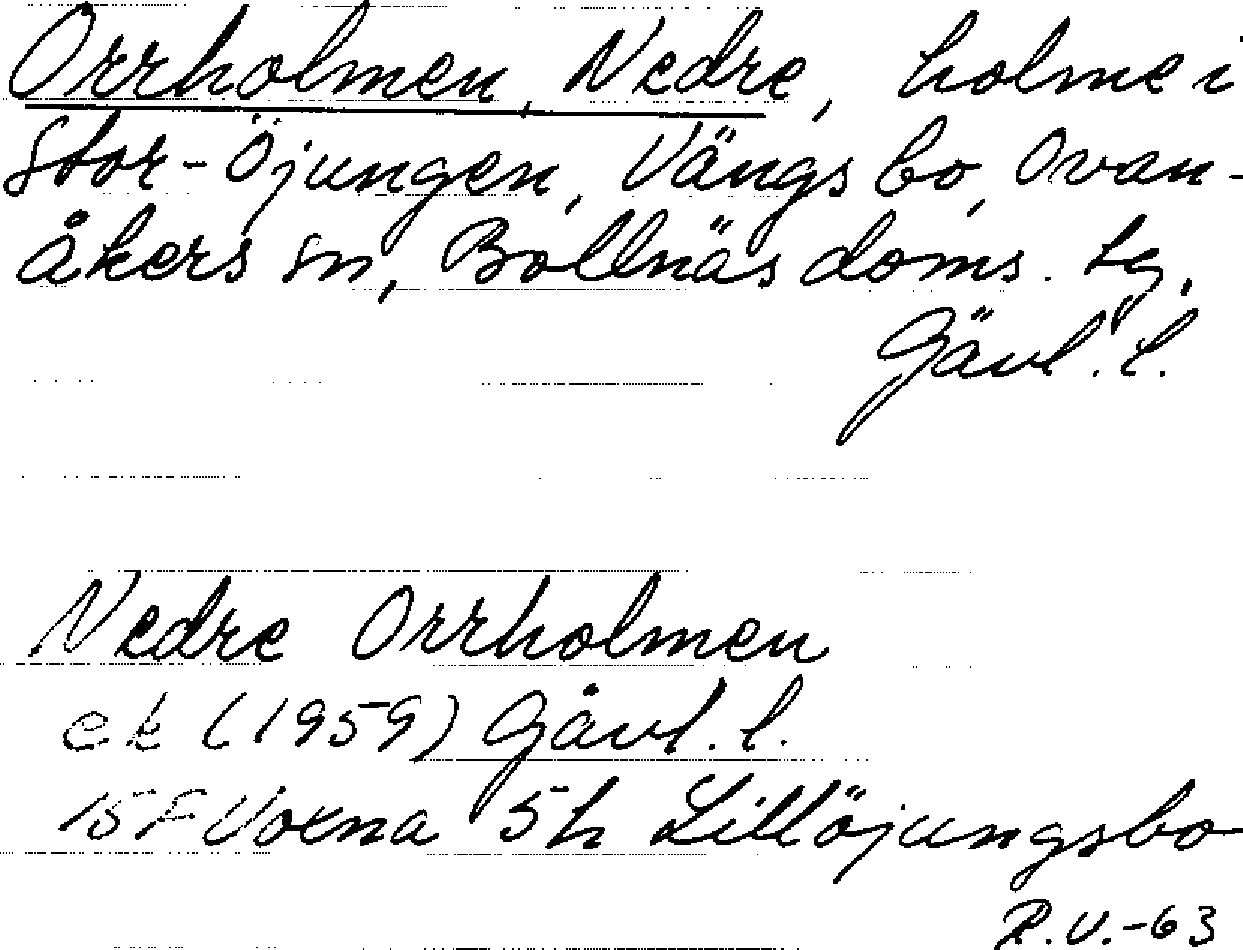 Orrholmen, Nedre, holme i
Stor-Öjungen, Vängsbo, Ovan-
åkers sn, Bollnäs doms. tg,
Gävl. l.
Nedre Orrholmen
ek (1959) Gävl. l.
15F Voxna 5h Lillöjungsbo
R.U.-63